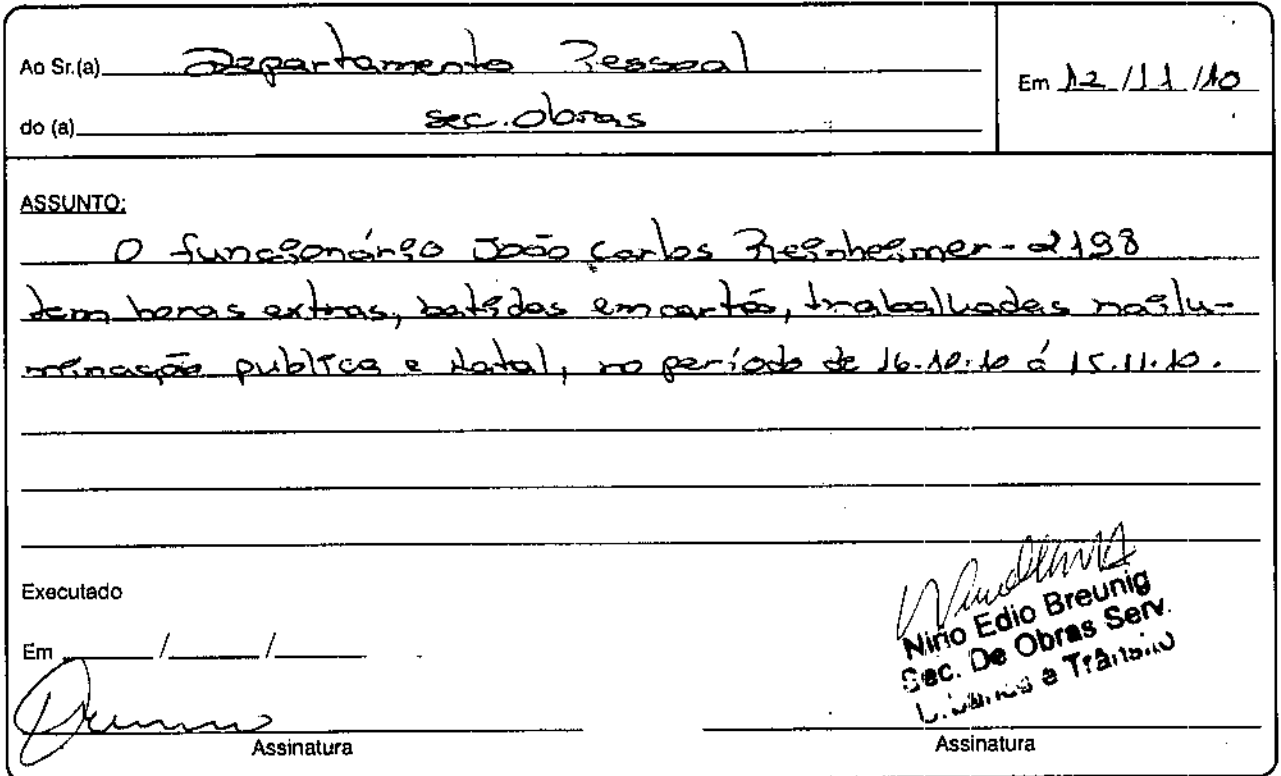 Ao Sr.(a) Departamento Pessoal
Em 12/11/10
do (a) sec. obras
ASSUNTO:
O funcionário João Carlos Reinheimer - 2198
tem horas extras, batidas em cartão, trabalhadas na ilu-
minação publica e Natal, no período de 16.10.10 á 15.11.10.
Executado
Em / /
Nirio Edio Breunig
Sec. De Obras Serv.
e Trânsito
Assinatura
Assinatura